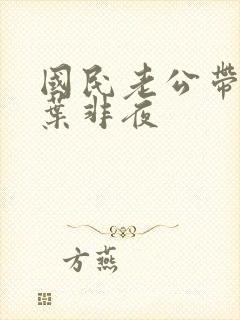 國民老公帶
葉非夜
方燕